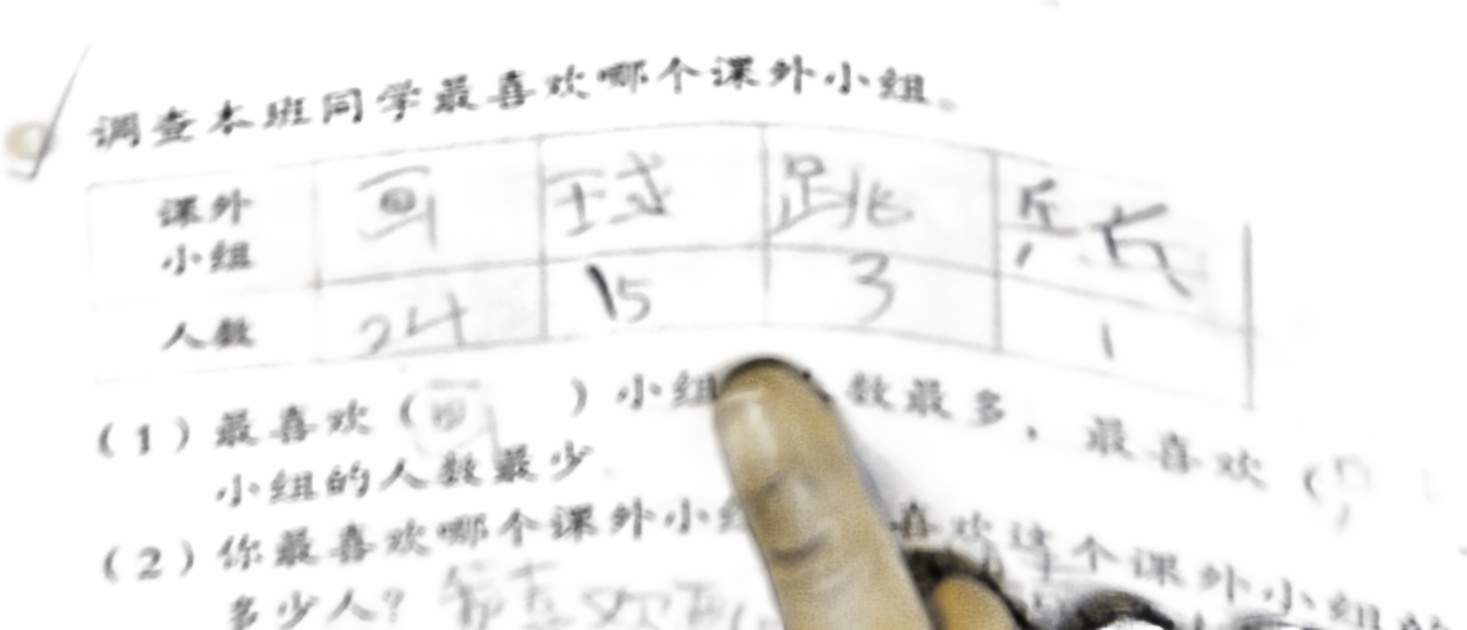 调查本班同学最喜欢哪个课外小组。
课外小组 画 球 跳
人数 24 15 3 1
(1)最喜欢(画)小组 人数最多,最喜欢(
小组的人数最少
(2)你最喜欢哪个课外小组 喜欢这个课外小组的
多少人?